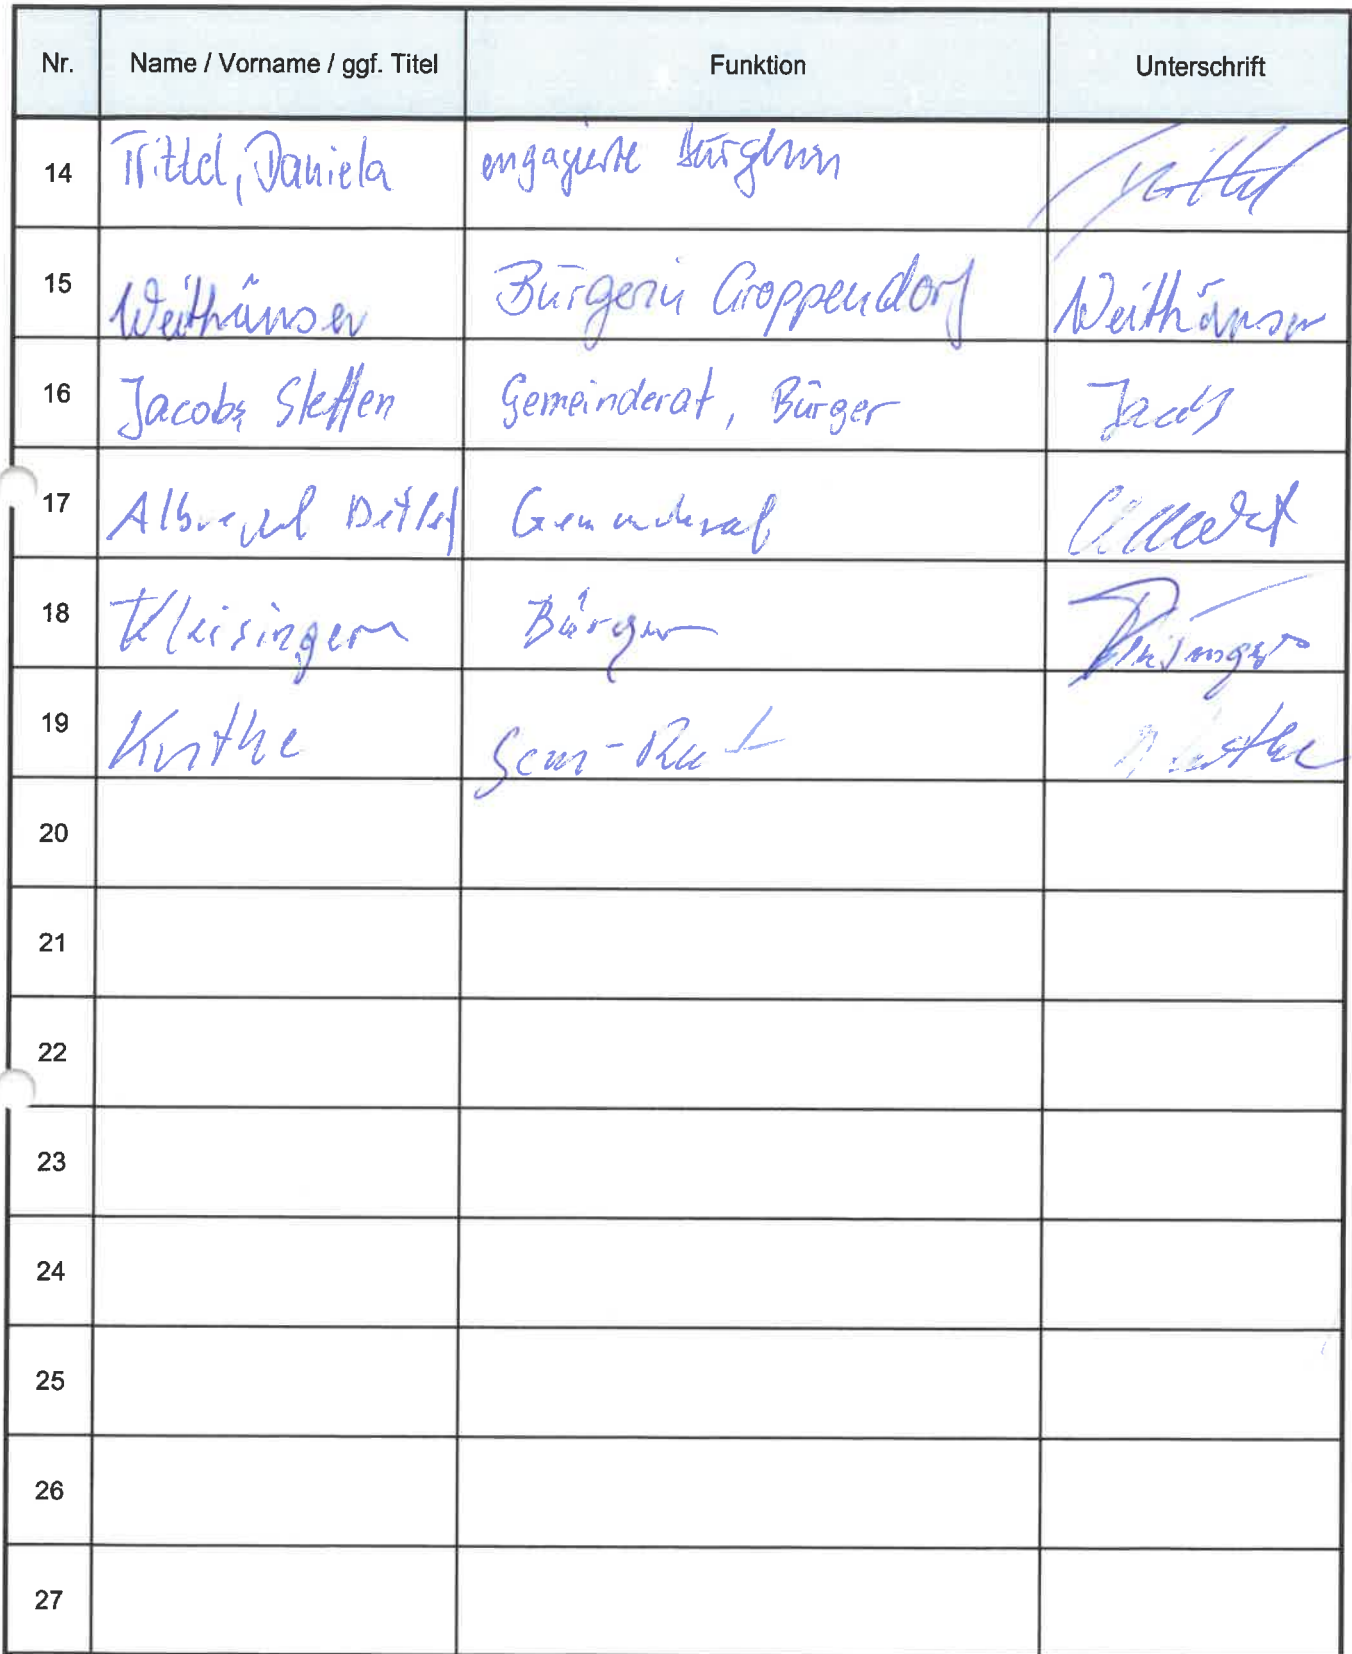 Nr. Name / Vorname / ggf. Titel Funktion Unterschrift
14 Trittel, Daniela engagierte Bürgerin Trittel
15 Weithäuser Bürgerin Groppendorf Weithäuser
16 Jacobs Steffen Gemeinderat, Bürger Jacobs
17 Albrecht Detlef Gemeinderat
18 Bürger
19 Gem-Rat
20
21
22
23
24
25
26
27